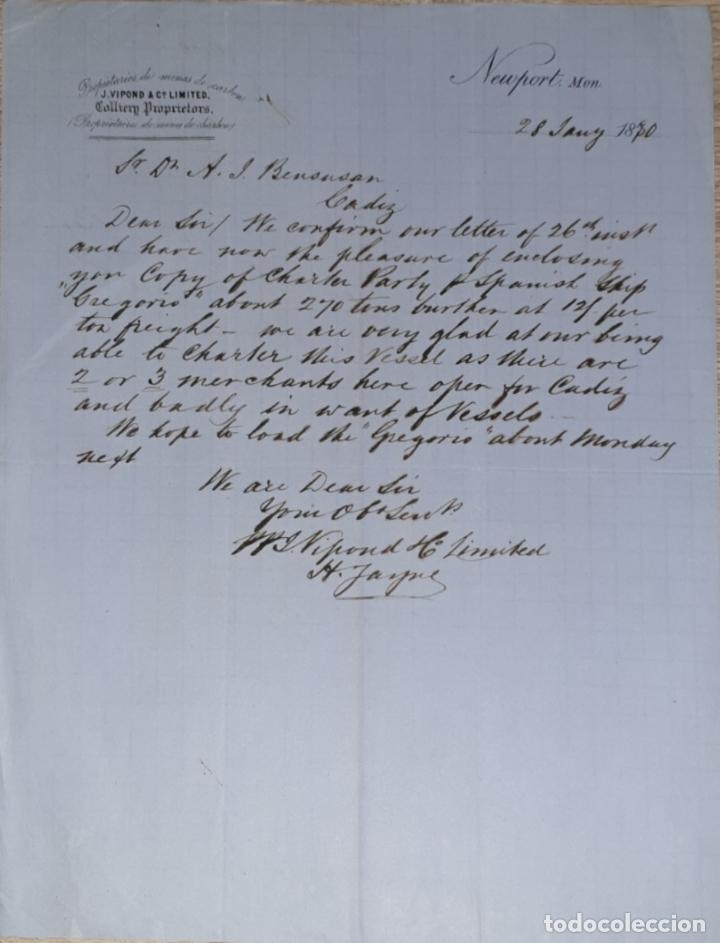 Propietarios de minas de carbon
J. VIPOND & Co LIMITED,
Colliery Proprietors.
(Propriétaires de mines de charbon)
Newport, Mon
28 Jany 1870
Sr. Dn A. J. Bensusan
Cadiz
Dear Sir/ We confirm our letter of 26th inst
and have now the pleasure of enclosing
you Copy of Charter Party p Spanish Ship
"Gregorio" about 270 tons burthen at 12/ per
ton freight - we are very glad at our being
able to Charter this Vessel as there are
2 or 3 merchants here open for Cadiz
and badly in want of Vessels -
We hope to load the "Gregorio" about Monday
next
We are Dear Sir
Your Obt Servts
J Vipond & Co Limited
H. Jayne
todocoleccion
todocoleccion.net